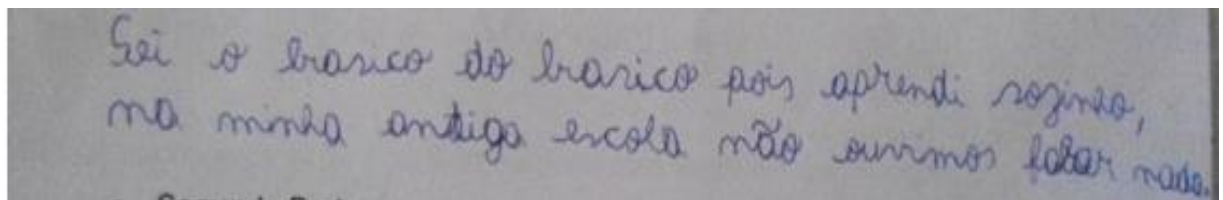 Sei o basico do basico pois aprendi sozinho,
na minha antiga escola não ouvimos falar nada.